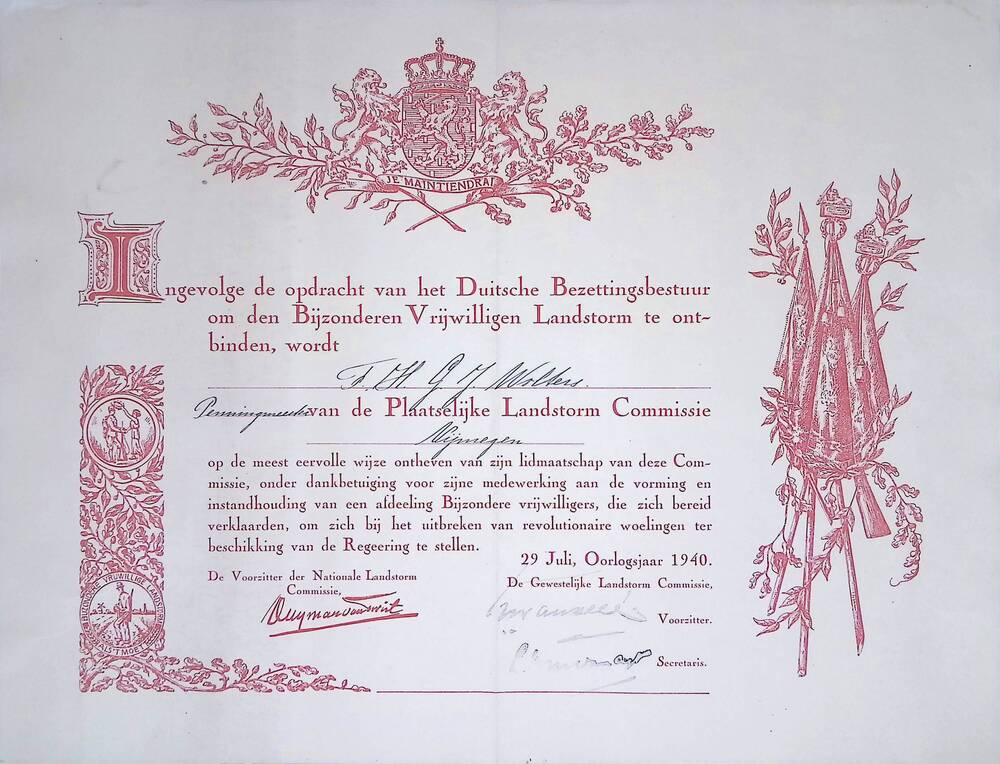 JE MAINTIENDRAI
Ingevolge de opdracht van het Duitsche Bezettingsbestuur
om den Bijzonderen Vrijwilligen Landstorm te ont-
binden, wordt
F. H G J Wolters.
Penningmeester van de Plaatselijke Landstorm Commissie
Nijmegen
op de meest eervolle wijze ontheven van zijn lidmaatschap van deze Com-
missie, onder dankbetuiging voor zijne medewerking aan de vorming en
instandhouding van een afdeeling Bijzondere vrijwilligers, die zich bereid
verklaarden, om zich bij het uitbreken van revolutionaire woelingen ter
beschikking van de Regeering te stellen.
29 Juli, Oorlogsjaar 1940.
De Voorzitter der Nationale Landstorm
Commissie,
De Gewestelijke Landstorm Commissie,
Voorzitter.
Secretaris.
BIJZONDERE VRIJWILLIGE LANDSTORM
ALS 'T MOET